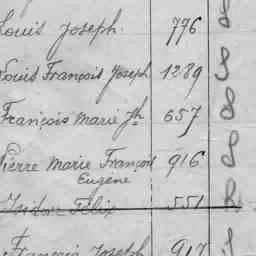 Louis Joseph. 776
Louis François Joseph 1289
François Marie Jh 657
Pierre Marie François 916
Eugène
Isidore Félix 551
François Joseph 917